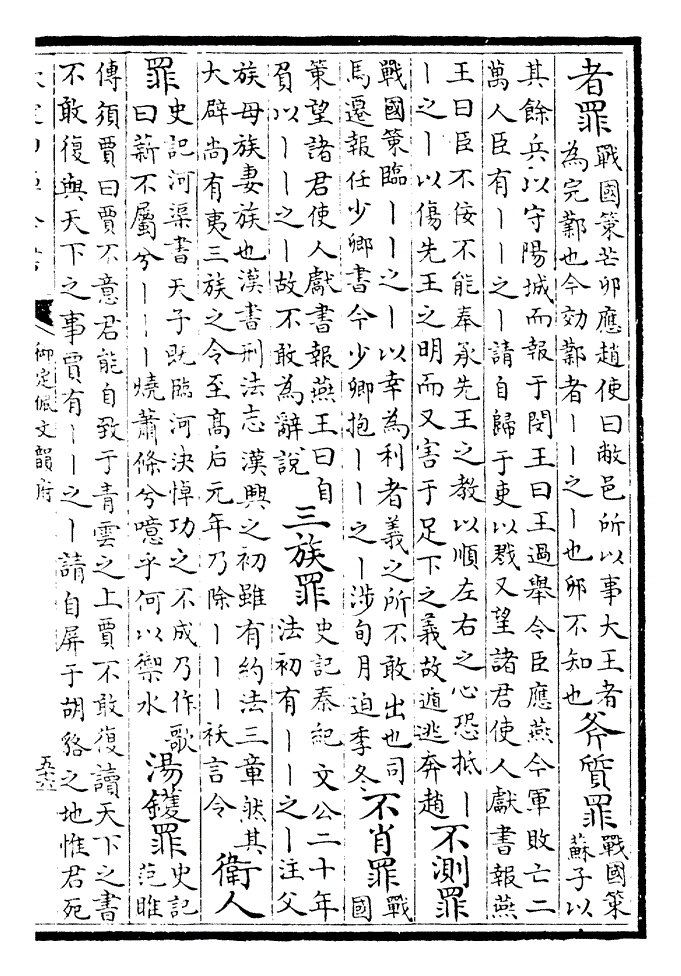 者罪
戰國策芒卯應趙使曰敝邑所以事大王者
為完鄴也今効鄴者丨丨之丨也卯不知也
斧質罪
戰國策
蘇子以
其餘兵以守陽城而報于閔王曰王過舉令臣應燕今軍敗亡二
萬人臣有丨丨之丨請自歸于吏以戮又望諸君使人獻書報燕
王曰臣不佞不能奉承先王之教以順左右之心恐抵丨
丨之丨以傷先王之明而又害于足下之義故遁逃奔趙
不測罪
戰國策臨丨丨之丨以幸為利者義之所不敢出也司
馬遷報任少卿書今少卿抱丨丨之丨涉旬月迫季冬
不肖罪
戰
國
策望諸君使人獻書報燕王曰自
負以丨丨之丨故不敢為辭説
三族罪
史記秦紀文公二十年
法初有丨丨之丨注父
族母族妻族也漢書刑法志漢興之初雖有約法三章然其
大辟尚有夷三族之令至髙后元年乃除丨丨丨祅言令
衛人
罪
史記河渠書天子既臨河決悼功之不成乃作歌
曰薪不屬兮丨丨丨燒蕭條兮噫乎何以禦水
湯鑊罪
史記
范睢
傳須賈曰賈不意君能自致于青雲之上賈不敢復讀天下之書
不敢復與天下之事賈有丨丨之丨請自屏于胡貉之地惟君死
御定佩文韻府
五十六